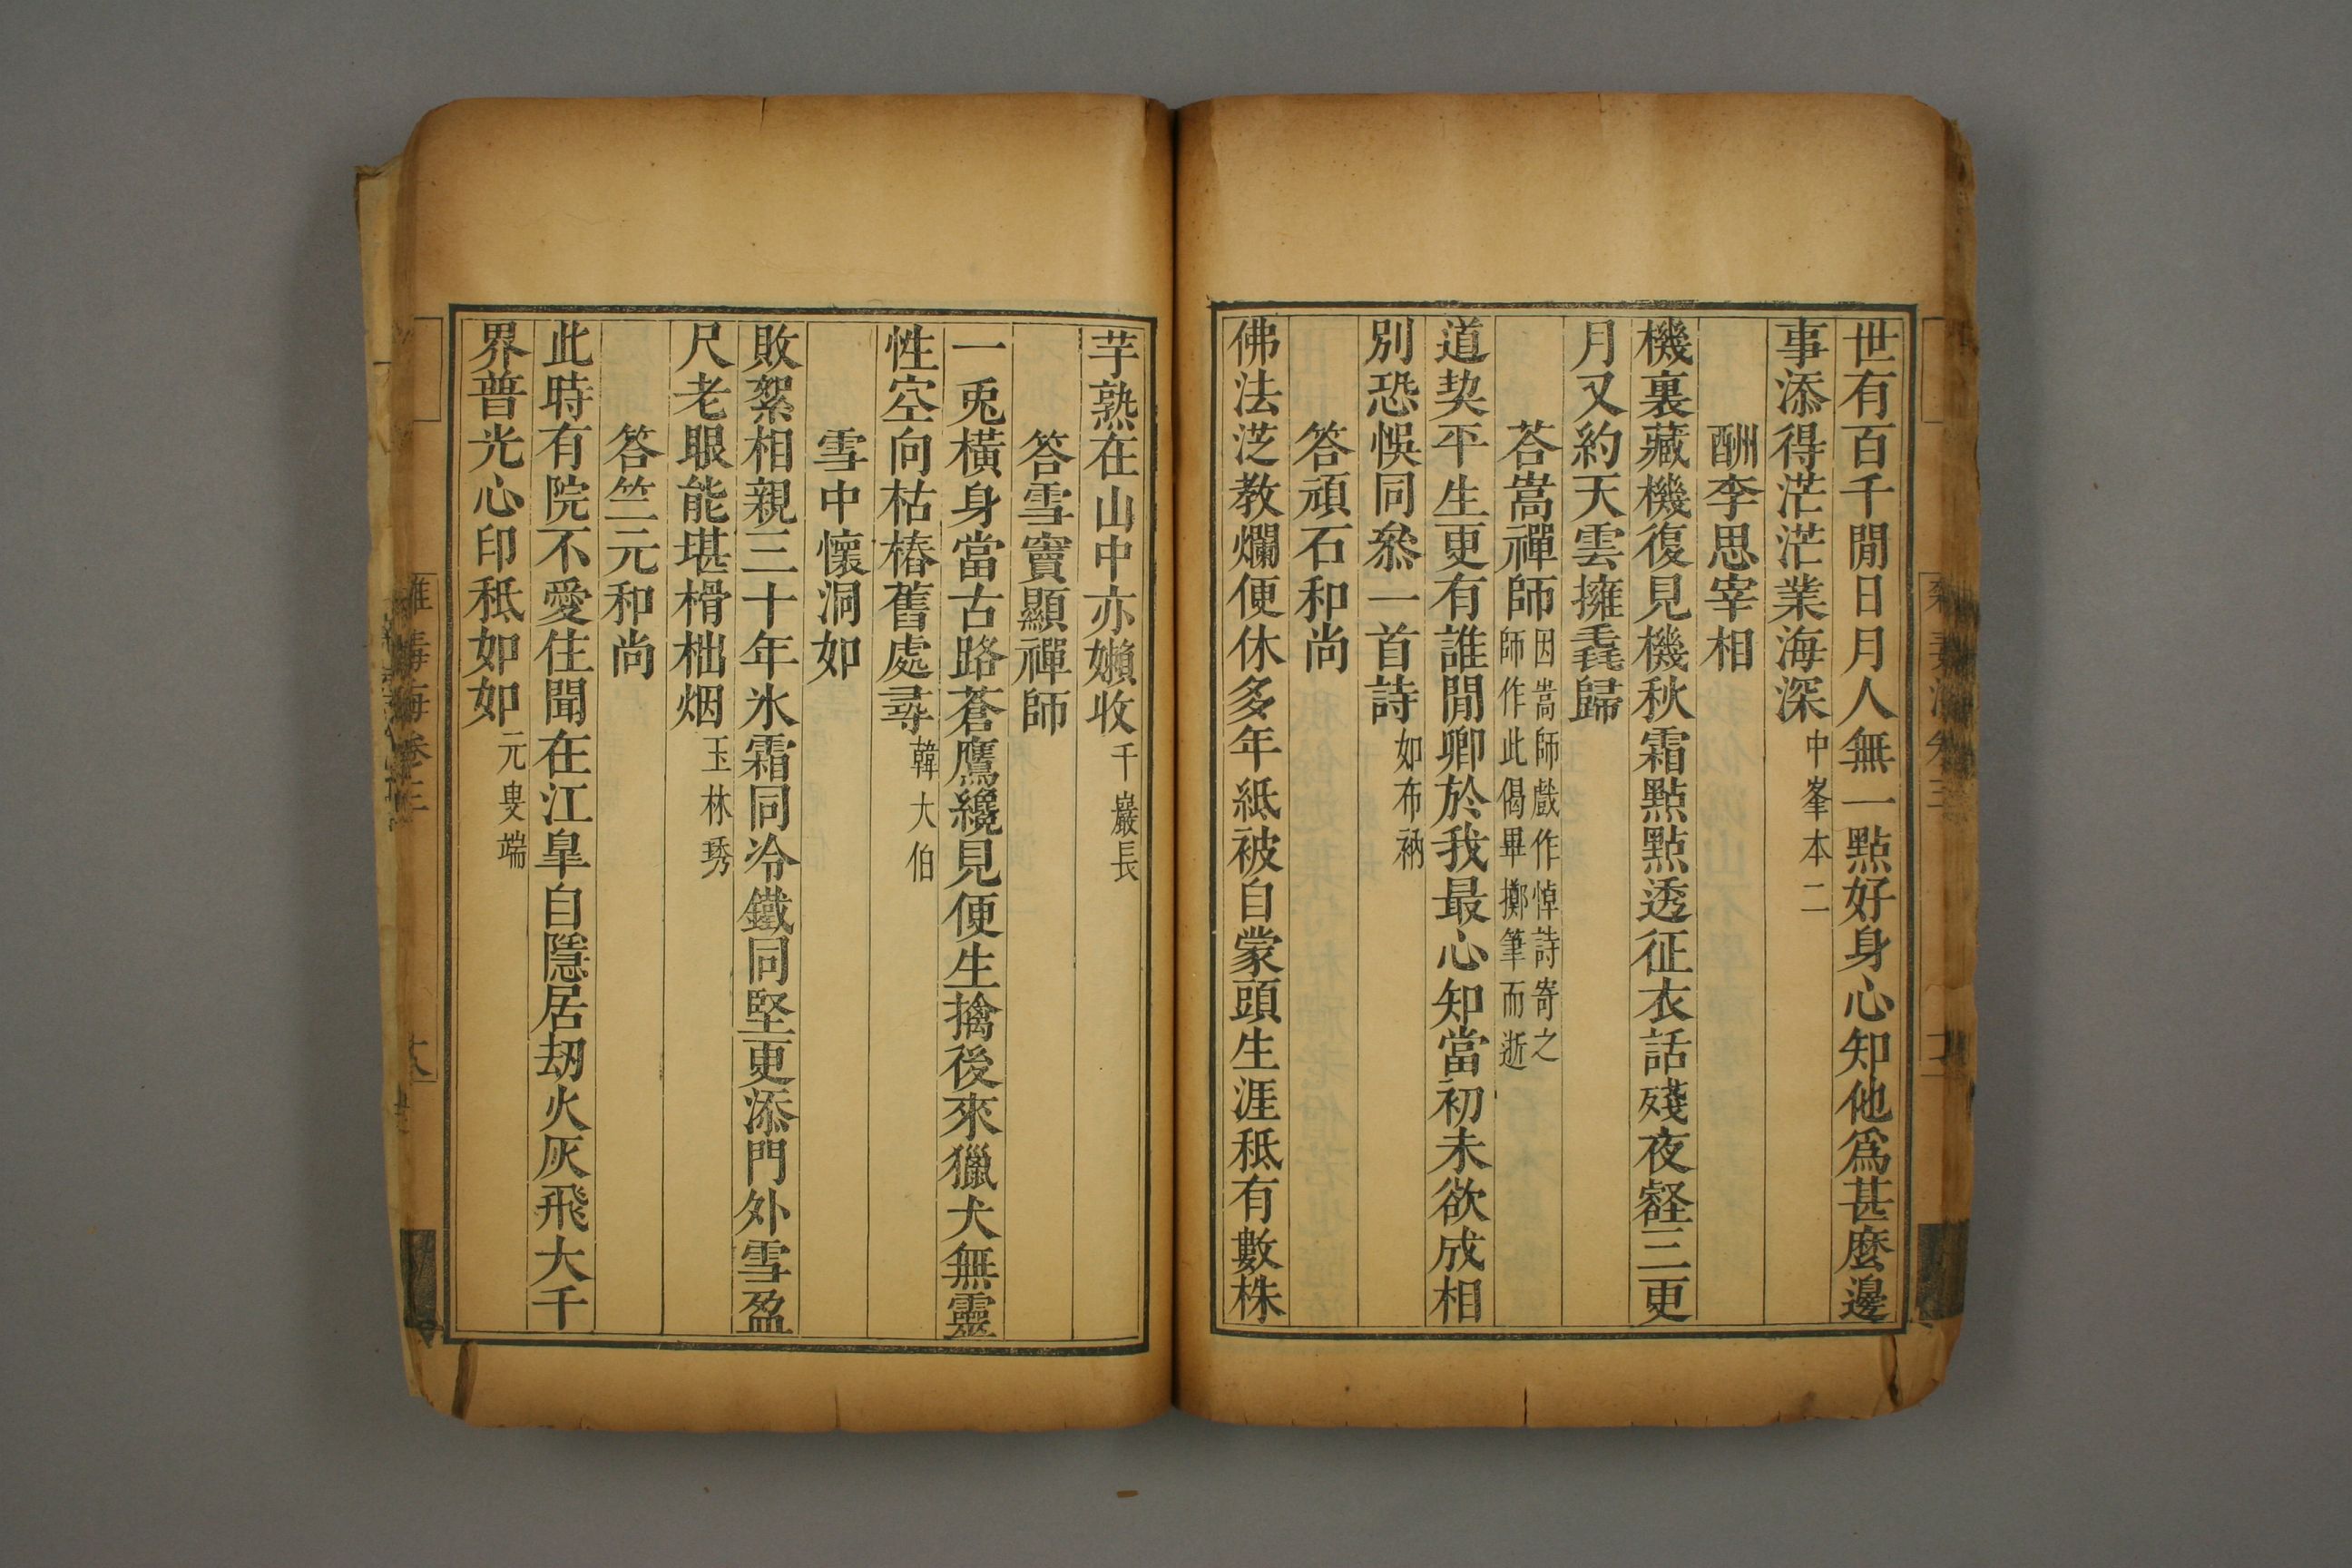 世有百千閒日月人無一點好身心知他爲甚麽邊
事添得茫茫業海深中峯本二
酬李思宰相
機裏藏機復見機秋霜點點透征衣話殘夜壑三更
月又約天雲擁毳歸
荅嵩禪師因嵩師戲作悼詩寄之
師作此偈畢擲筆而逝
道契平生更有誰閒卿於我最心知當初未欲成相
別恐悞同叅一首詩如布衲
答頑石和尚
佛法茫教爛便休多年紙被自蒙頭生涯秪有數株
芋熟在山中亦嬾收千巖長
答雪竇顯禪師
一兎橫身當古路蒼鷹纔見便生擒後來獵犬無靈
性空向枯樁舊處尋韓大伯
雪中懷洞如
敗絮相親三十年氷霜同冷鐵同堅更添門外雪盈
尺老眼能堪榾柮烟玉林琇
答竺元和尚
此時有院不愛住聞在江臯自隱居刼火灰飛大千
界普光心印秪如如元叟端